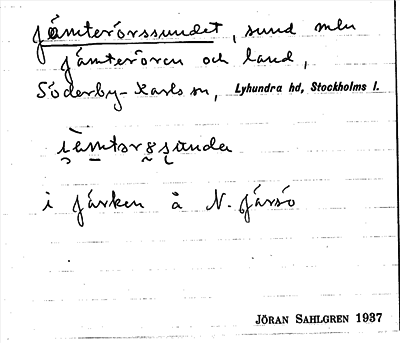 Jämterörssundet, sund mln
Jämterören och land,
Söderby-Karls sn, Lyhundra hd, Stockholms l.
i Järken å N. Järsö
JÖRAN SAHLGREN 1937